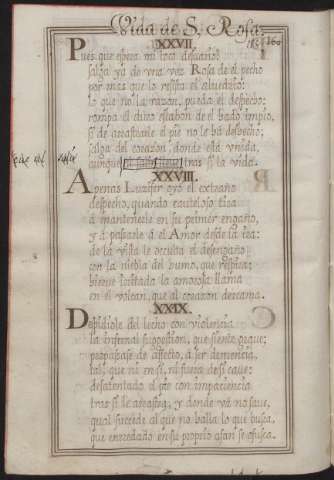 Vida de S. Rosa.
XXVII.
Pues que espera mi loco desvarío?
salga ya de una vez Rosa de el pecho
por mas que lo resista el alvedrío:
lo que no la razon, pueda el despecho:
rompa el duro eslabon de el hado impío,
si de arrastrarle el pie no le ha deshecho;
salga del corazon, donde está unida,
aunque tras si la vida.
XXVIII.
Apenas Luzifer oyó el extraño
despecho, quando cauteloso
á mantenerle en su primer engaño,
y á pasarle á el Amor desde la
de la vista le oculta el desengaño
con la niebla del humo, que respira;
hierve la amorosa llama
en el volcan, que al corazon derrama.
XXIX.
Despidiole del lecho con violencia
la infernal sugestion, que siente grave;
de affecto, á ser demencia,
tal, que ni en sí, ni fuera de sí cave;
desatentado el pie con impaciencia
tras sí le arrastra; y donde vá no save,
qual sucede al que no halla lo que busca,
que enredado en su proprio afan se ofusca.